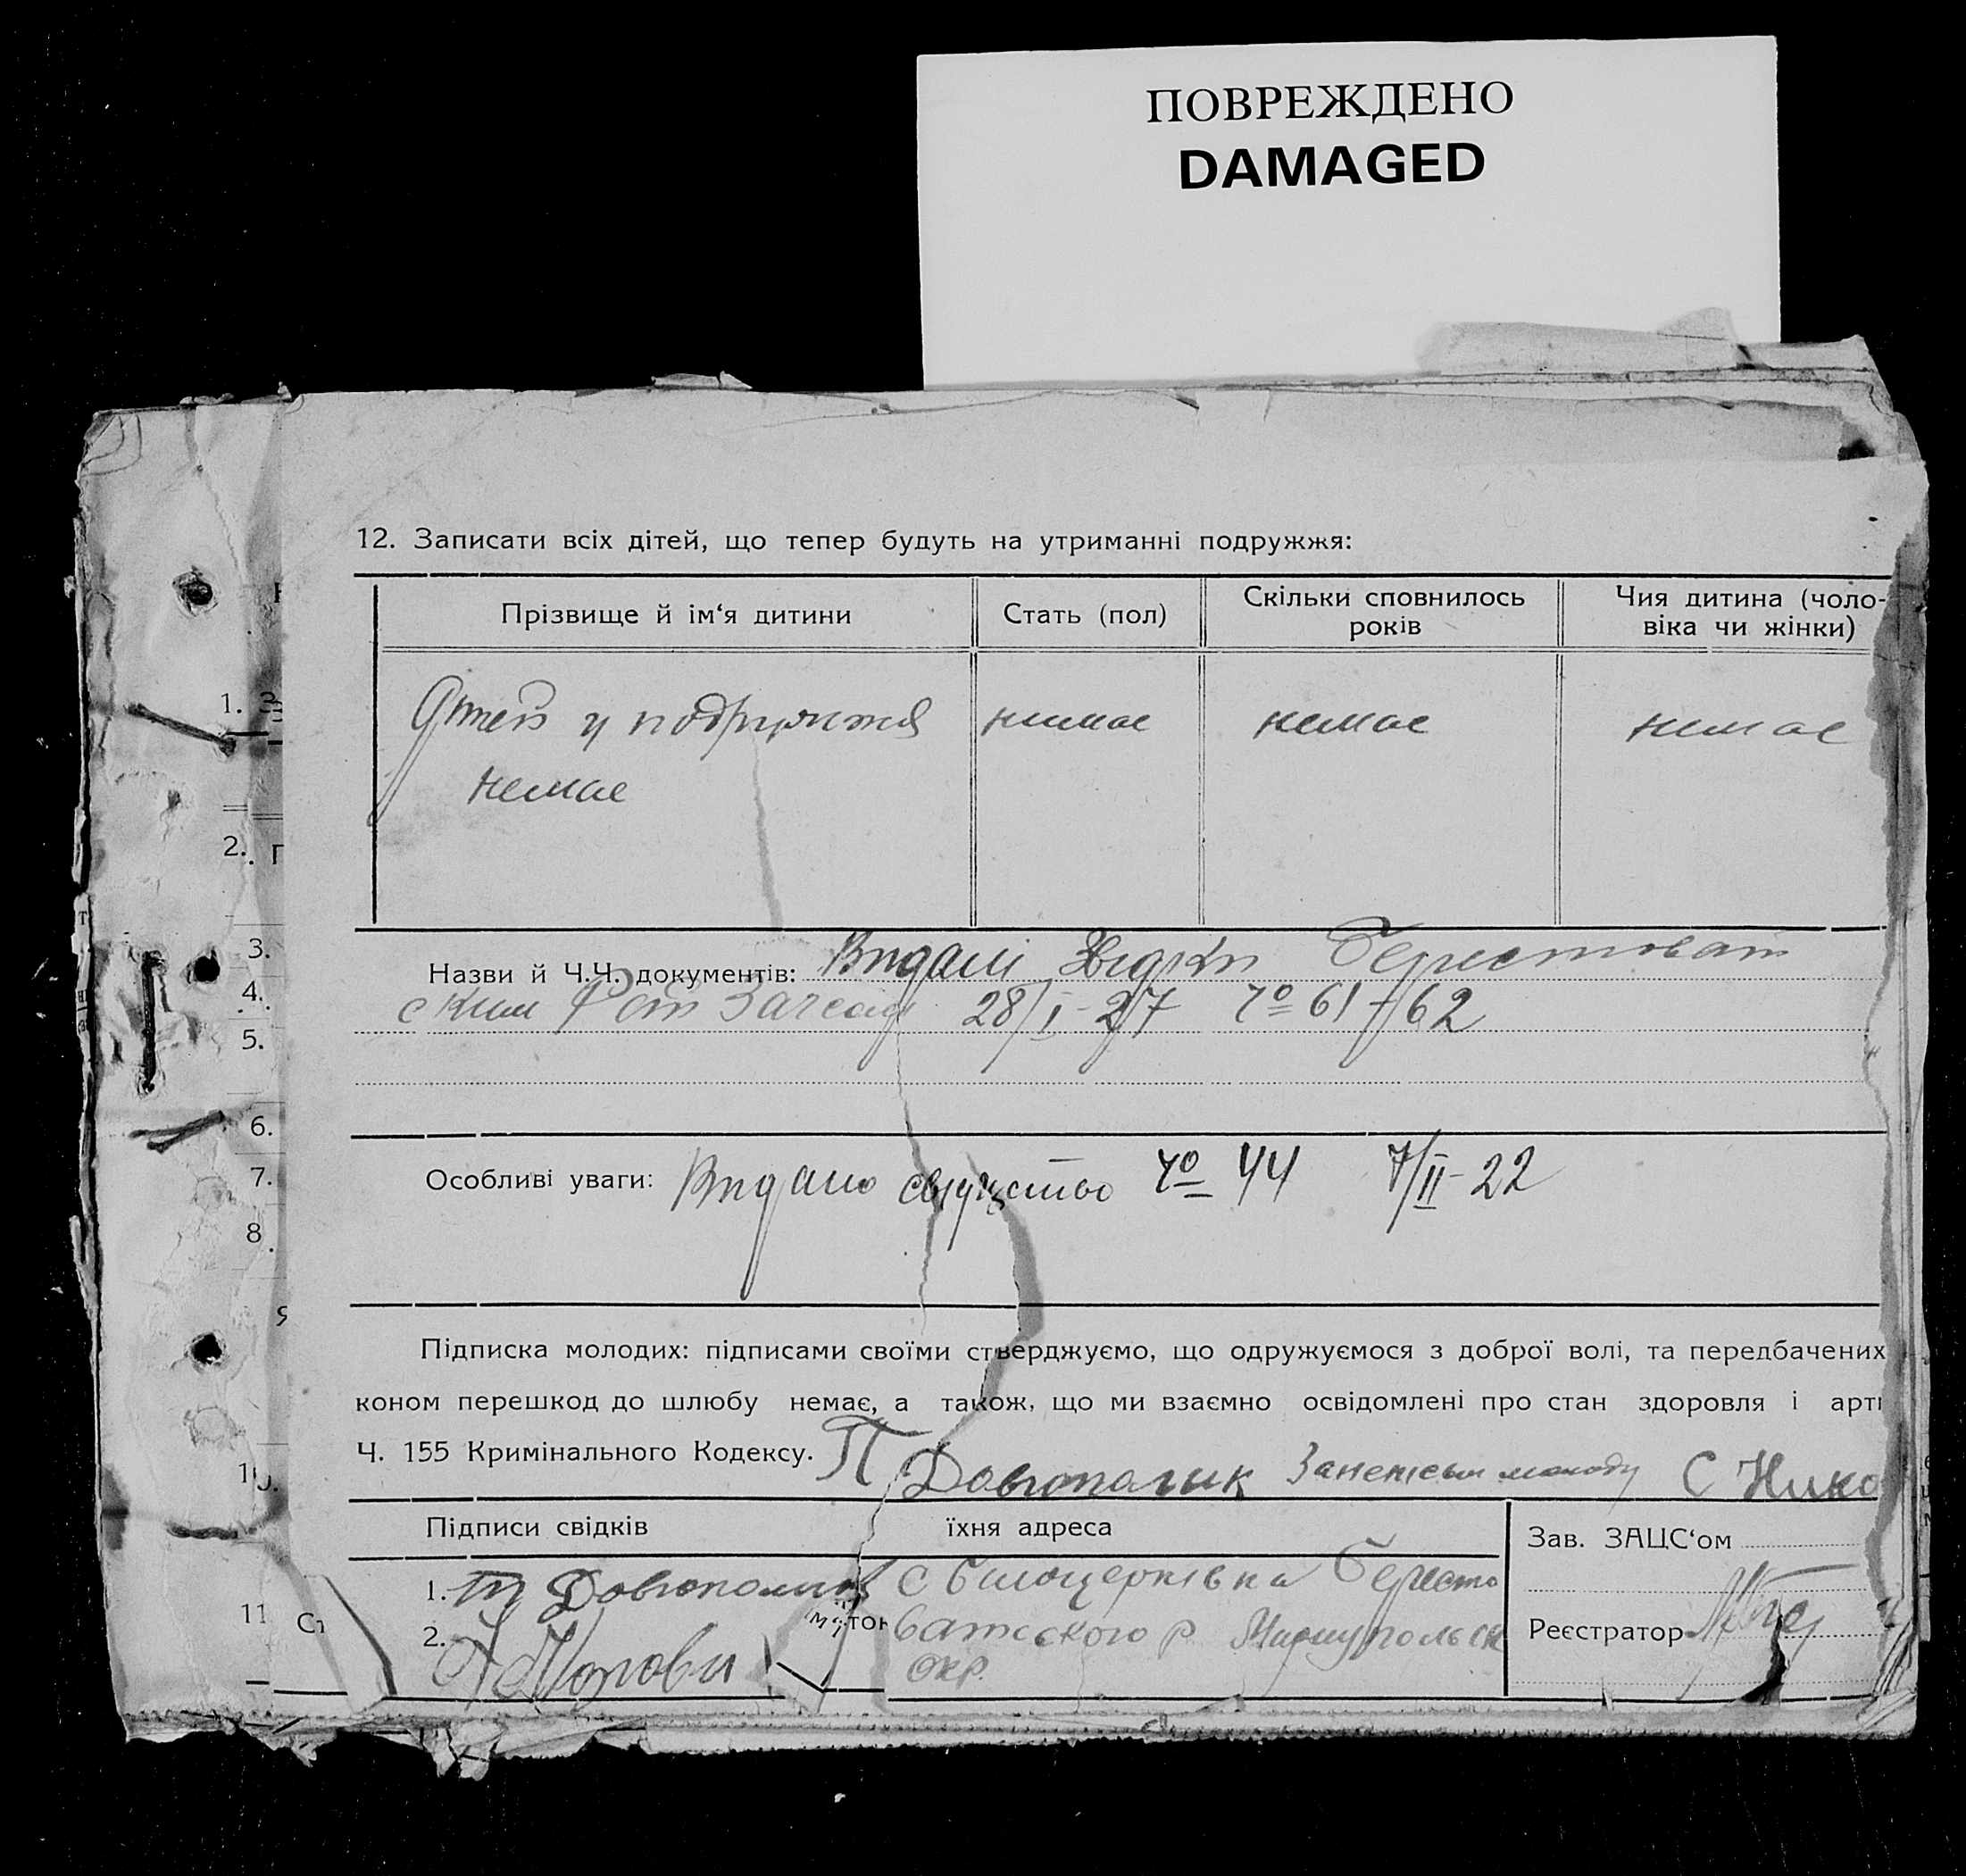 ПОВРЕЖДЕНО
DAMAGED
12. Записати всіх дітей, що тепер будуть на утриманні подружжя:
Прізвище й ім‘я дитини
Стать (пол)
Скільки сповнилось
років
Чия дитина (чоло-
віка чи жінки)
Дітей у подружжя немає немає немає
немає
Назви й Ч.Ч. документів: Видані Звідки Берестоват
ским 28/I-27 № 61-62
Особливі уваги: Видано свідоцтво № 44 7/II-22
Підписка молодих: підписами своїми стверджуємо, що одружуємося з доброї волі, та передбачених
коном перешкод до шлюбу немає, а також, що ми взаємно освідомлені про стан здоровля і арт
Ч. 155 Кримінального Кодексу. П Довгополик С Нико
Підписи свідків
їхня адреса
Зав. ЗАЦС‘ом
1. Довгополик С Білоцерківка Бересто
2. ватского р Мариупольск
окр.
Реєстратор
1.
2.
3.
4.
5.
6.
7.
8.
10.
11